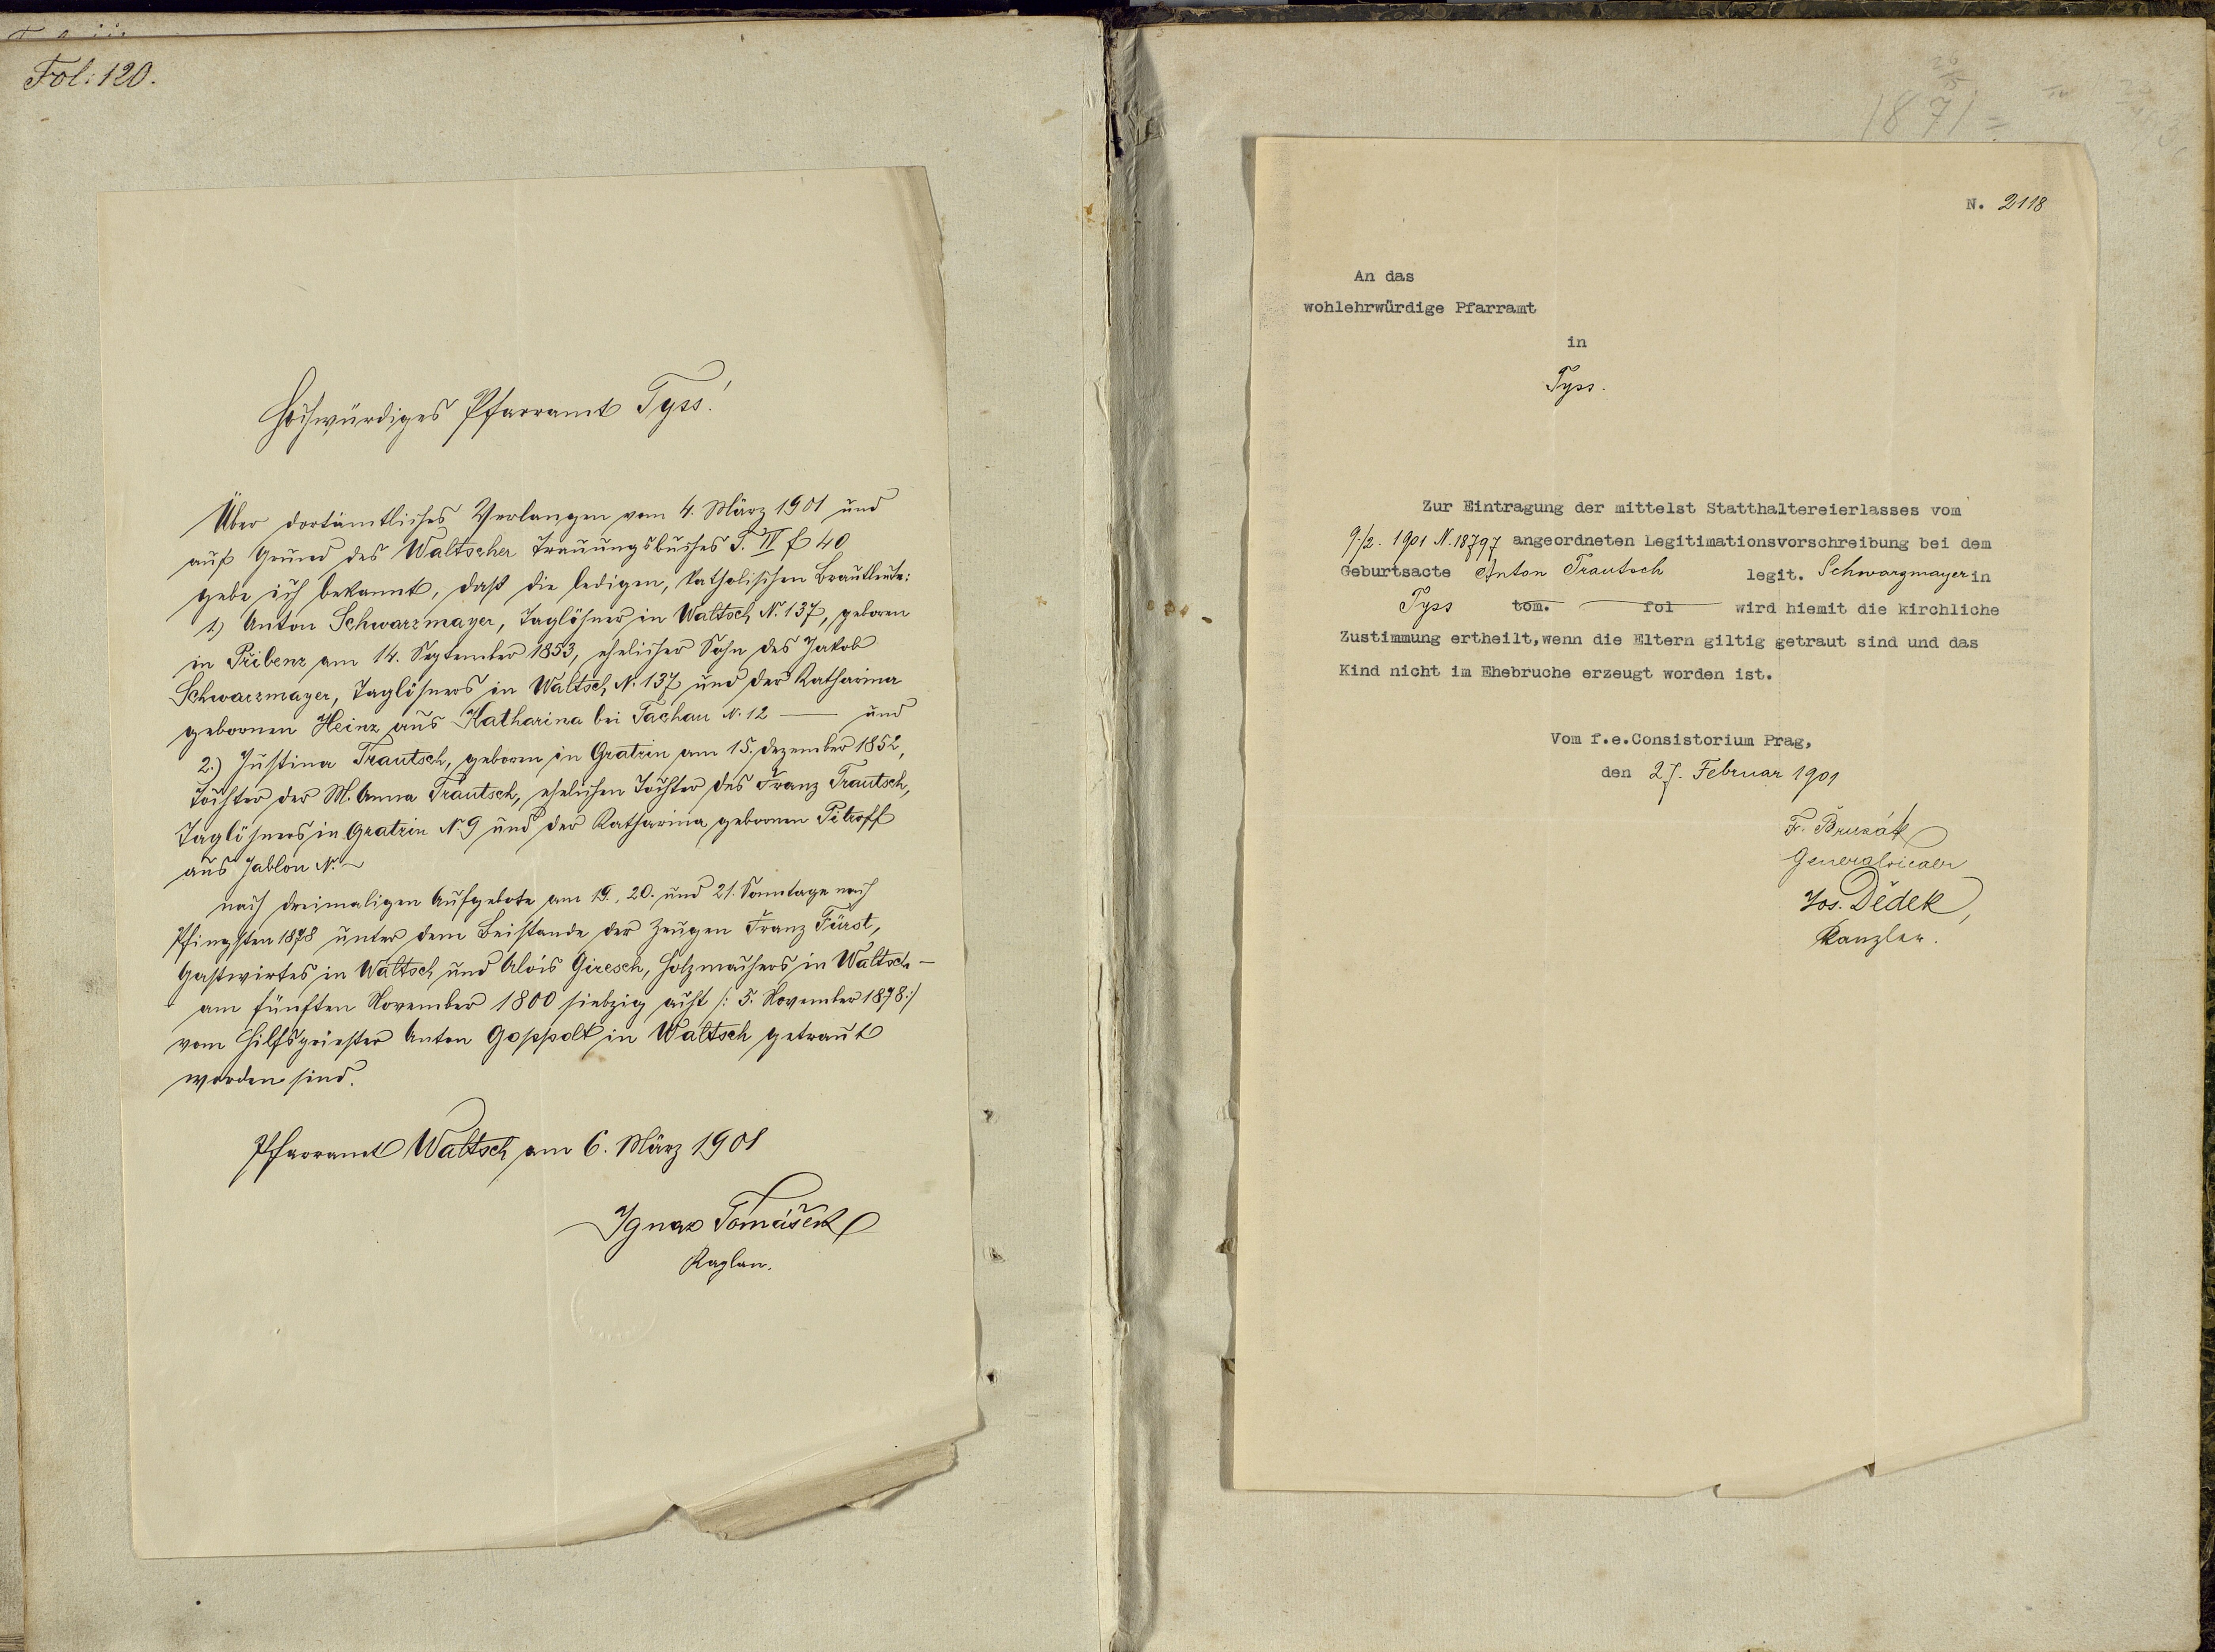 Fol: 120.
Hochwürdiges Pfarramt Tyss!
Über dortämtliches Verlangen vom 4. März 1901 und
auf Grund des Waltscher Trauungsbuches T. IV f 40
gebe ich bekannt, daß die ledigen, katholischen Brautleute:
1.) Anton Schwarzmayer, Taglöhner in Waltsch N. 137, geboren
in Přibenz am 14. September 1853, ehelicher Sohn des Jakob
Schwarzmayer, Taglöhners in Waltsch N. 137 und der Katharina
gebornen Heinz aus Katharina bei Tachau N. 12 — und
2.) Justina Trautsch, geboren in Gratzin am 15. Dezember 1852,
Tochter der M. Anna Trautsch, ehelichen Tochter des Franz Trautsch,
Taglöhners in Gratzin N. 9 und der Katharina gebornen Pitroff
aus Jablon N. ~
nach dreimaligen Aufgebote am 19., 20. und 21. Sonntage nach
Pfingsten 1878 unter dem Beistande der Zeugen Franz Fürst,
Gastwirtes in Waltsch und Alois Giresch, Holzmachers in Waltsch —
am fünften November 1800 siebzig acht /: 5. November 1878 :/
vom Hilfspriester Anton Goppolt in Waltsch getraut
worden sind.
Pfarramt Waltsch am 6. März 1901
Ignaz Tomášek
Kaplan.
1871 =
N. 2118
An das
wohlehrwürdige Pfarramt
in
Tyss.
Zur Eintragung der mittelst Statthaltereierlasses vom
9./2. 1901 N. 18797 angeordneten Legitimationsvorschreibung bei dem
Geburtsacte Anton Trautsch legit. Schwarzmayer in
Tyss tom. fol wird hiemit die kirchliche
Zustimmung ertheilt, wenn die Eltern giltig getraut sind und das
Kind nicht im Ehebruche erzeugt worden ist.
Vom f.e.Consistorium Prag,
den 27. Februar 1901
F. Brusák
Generalvicar
Jos. Dědek,
Kanzler.